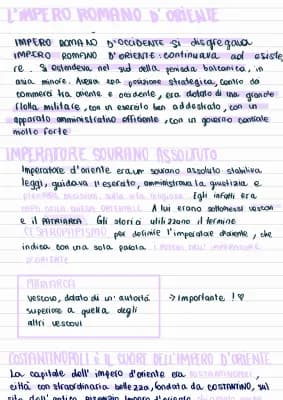 L'IMPERO ROMANO D'ORIENTE
IMPERO ROMANO D'OCCIDENTE si disgregava
IMPERO ROMANO D'ORIENTE: continuava ad esiste
re. Si estendeva nel sud della penisola balcanica, in
asia minore. Aveva una posizione strategica, centro dei
commerci tra oriente e occidente, era dotato di una grande
flotta militare, con un esercito ben addestrato, con un
apparato amministrativo efficiente, con un governo centrale
molto forte
IMPERATORE SOVRANO ASSOLUTO
Imperatore d'oriente era un sovrano assoluto stabiliva
leggi, guidava l'esercito, amministrava la giustizia e
religiosa Egli infatti era
A lui erano sottomessi vescovi
e il PATRIARCA Gli storici utilizzano il termine
CESAROPAPISMO per definire l'imperatore d'oriente, che
indica con una sola parola i poteri dell'imperatore
d'oriente
PATRIARCA
vescovo, dotato di un'autorità
superiore a quella degli
altri vescovi
→ importante! ♡
COSTANTINOPOLI è IL CUORE DELL'IMPERO D'ORIENTE
La capitale dell'impero d'oriente era COSTANTINOPOLI,
città con straordinaria bellezza, fondata da COSTANTINO, sul